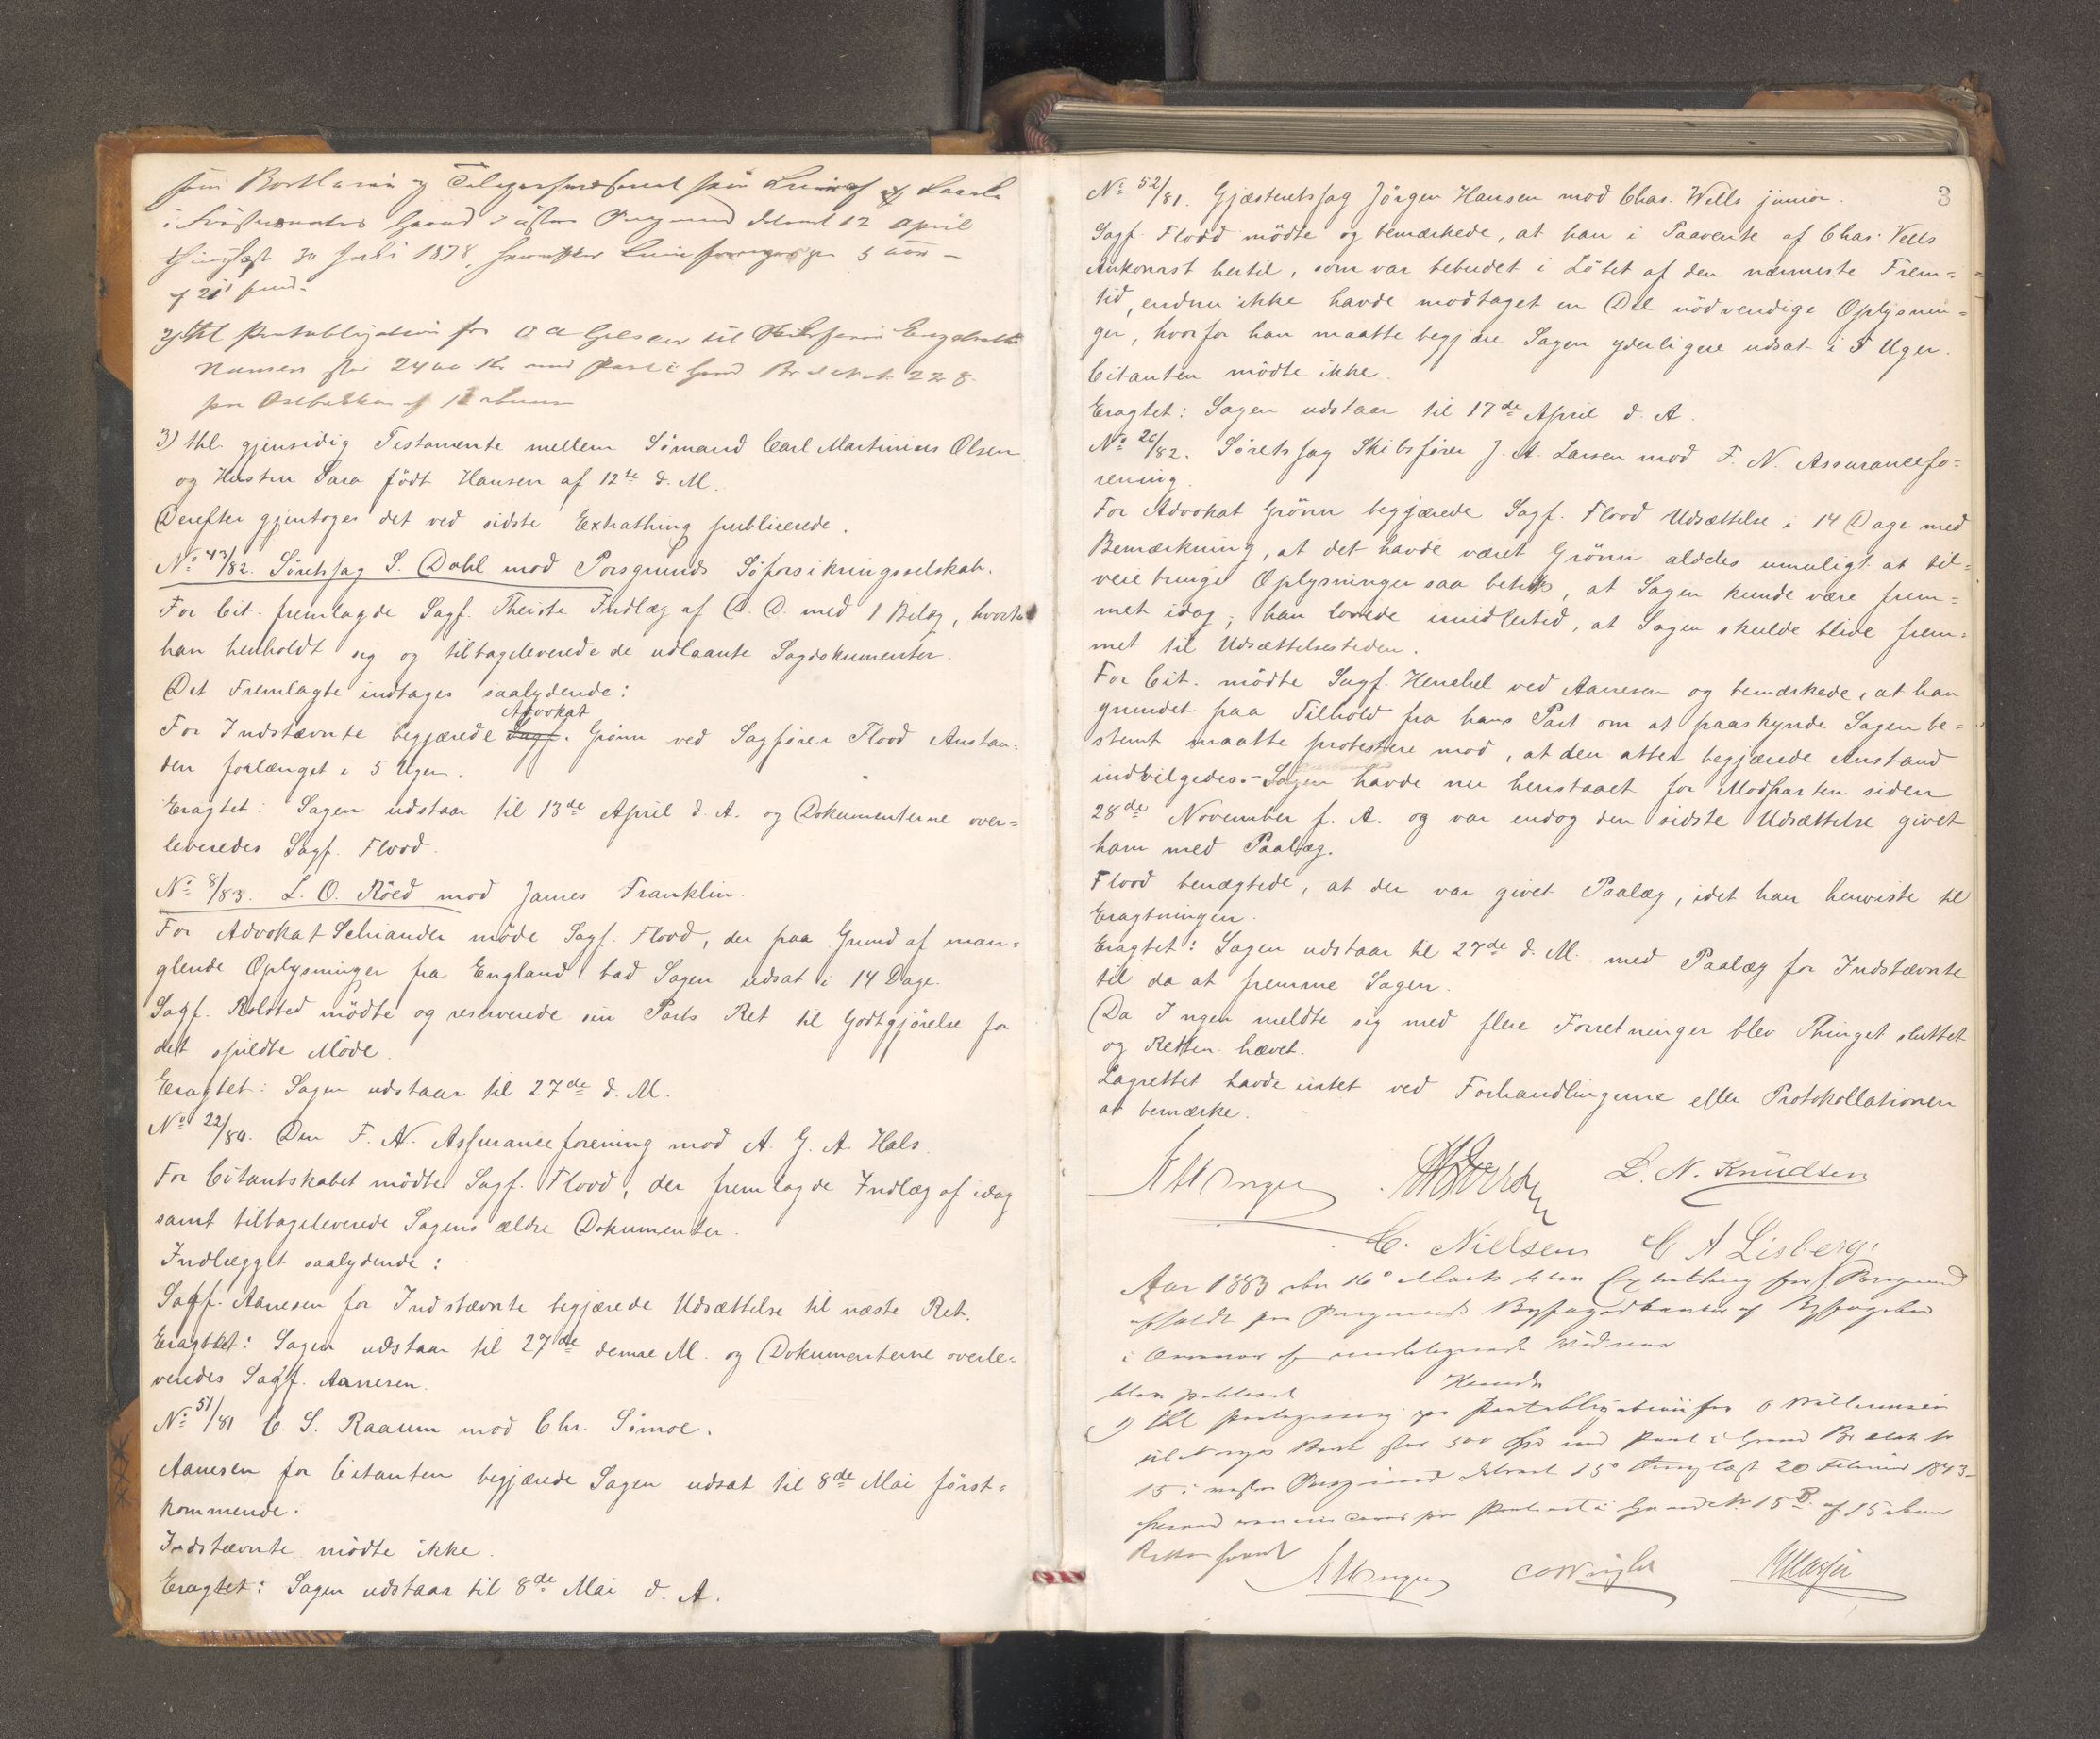 i Gaard i Porsgrund 12 April
thinglæst 30 Juli 1878, 5
af 21
2) thl til
2400 Kr. med Pant i Gaard 228
paa Osebakken af
3) thl. gjensidig Testamente mellem Sömand Carl Martinius Olsen
og Hustru Sara födt Hansen af 12te d. M.
Derefter gjentoges det ved sidste Extrathing publicerede.
No 43/82. Söretssag S. Dahl mod Porsgrunds Söforsikringsselskab.
For Cit. fremlagde Sagf. Theiste Indlæg af D. D. med 1 Bilag, hvortil
han henholdt sig og tilbageleverede de udlaante Sagdokumenter.
Det Fremlagte indtages saalydende:
Advokat
For Indstævnte begjærede Sagf. Grönn ved Sagförer Flood Anstan-
den forlænget i 5 Uger.
Eragtet: Sagen udstaar til 13de April d. A. og Dokumenterne over-
leveredes Sagf. Flood.
No 8/83. L. O. Röed mod James Franklin.
For Advokat Schiander möde Sagf. Flood, der paa Grund af man-
glende Oplysninger fra England bad Sagen udsat i 14 Dage.
Sagf. Rolsted mödte og reserverede sin Parts Ret til Godtgjörelse for
det spildte Möde.
Eragtet: Sagen udstaar til 27de d. M.
No 22/80. Den F. N. Assuranceforening mod A. G. A. Hals.
For Citantskabet mödte Sagf. Flood, der fremlagde Indlæg af idag
samt tilbageleverede Sagens ældre Dokumenter.
Indlægget saalydende:
Sagf. Aanesen for Indstævnte begjærede Udsættelse til næste Ret.
Eragtet: Sagen udstaar til 27de denne M. og Dokumenterne overle-
veredes Sagf. Aanesen.
No 51/81 C. S. Raaum mod Chr. Simoe.
Aanesen for Citanten begjærede Sagen udsat til 8de Mai först-
kommende.
Indstævnte mödte ikke.
Eragtet: Sagen udstaar til 8de Mai d. A.
3
No 52/81. Gjæsteretssag Jörgen Hansen mod Chas. Wells junior.
Sagf. Flood mödte og bemærkede, at han i Paavente af Chas. Vells
Ankomst hertil, som var bebudet i Löbet af den nærmeste Frem-
tid, endnu ikke havde modtaget en Del nödvendige Oplysnin-
ger, hvorfor han maatte begjære Sagen yderligere udsat i 5 Uger.
Citanten mödte ikke.
Eragtet: Sagen udstaar til 17de April d. A.
No 26/82. Söretssag Skibsförer J. A. Larsen mod F. N. Assurancefo-
rening.
For Advokat Grönn begjærede Sagf. Flood Udsættelse i 14 Dage med
Bemærkning, at det havde været Grönn aldeles umuligt at til-
veiebringe Oplysninger saa betids, at Sagen kunde være frem-
met idag; han lovede imidlertid, at Sagen skulde blive frem-
met til Udsættelsestiden.
For Cit. mödte Sagf. Henchel ved Aanesen og bemærkede, at han
grundet paa Tilhold fra hans Part om at paaskynde Sagen be-
stemt maatte protestere mod, at den atter begjærede Anstand
indvilgedes. - Sagen havde nu henstaaet for Modparten siden
28de November f. A. og var endog den sidste Udsættelse givet
ham med Paalæg.
Flood benægtede, at der var givet Paalæg, idet han henviste til
Eragtningen.
Eragtet: Sagen udstaar til 27de d. M. med Paalæg for Indstævnte
til da at fremme Sagen.
Da Ingen meldte sig med flere Forretninger blev Thinget sluttet
og Retten hævet.
Lagrettet havde intet ved Forhandlingerne eller Protokollationen
at bemærke.
L. N. Knudsen
C. Nielsen C A Lisberg
Aar 1883 den 16de Marts blev Extrathing for Porsgrund
afholdt paa Porsgrunds Byfogedkontor af Byfogden
i Overvær af undertegnede Vidner
Hvorda
blev publiceret
1) thl paa Pantobligation fra
til Norges Bank stor 500 Spd med Pant i Gaard
15 i Porsgrund thinglæst 20 Februar 1843
af 15
Retten hævet